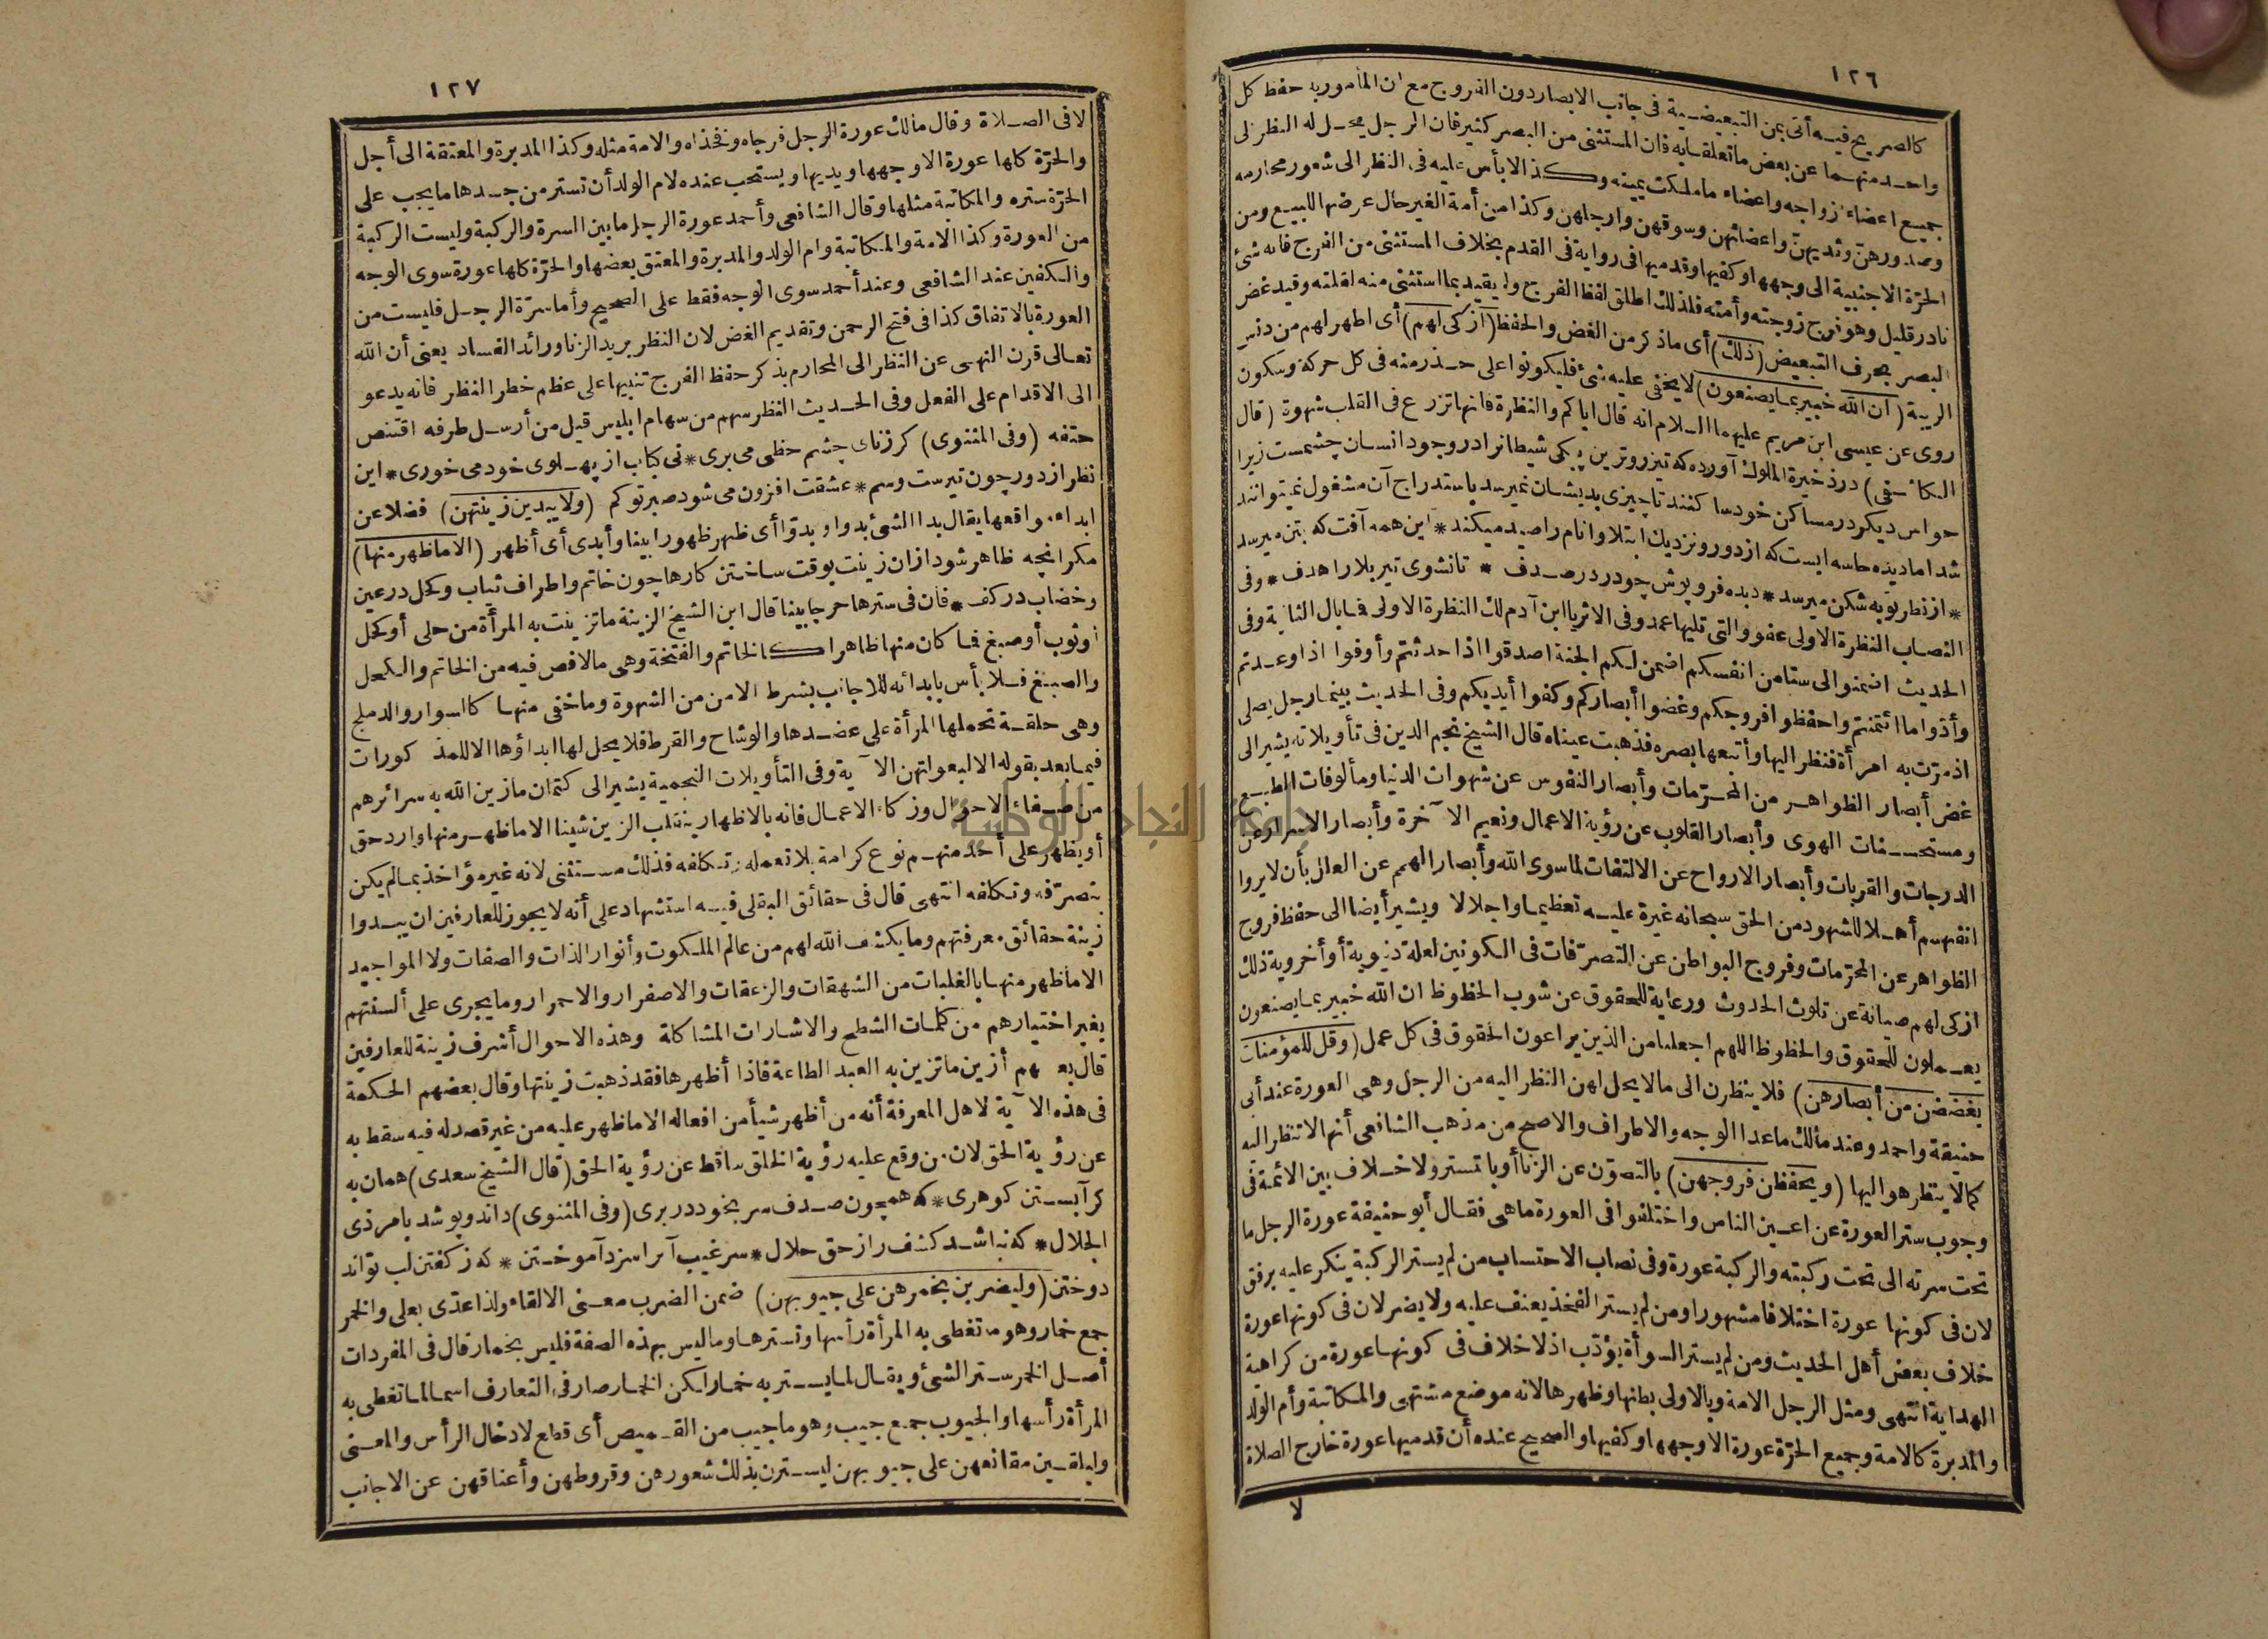 ١٢٦
كالصريح فيه أتى بمن التبعيضية فى جانب الابصار دون الفروج مع ان المأمور به حفظ كل
واحد منهما عن بعض ما تعلقا به فان المستثنى من البصر كثير فان الرجل يحل له النظر الى
جميع اعضاء ازواجه واعضاء ما ملكت يمينه وكذا لا بأس عليه فى النظر الى شعور محارمه
وصدورهن وثديهن واعضائهن وسوقهن وارجلهن وكذا من أمة الغير حال عرضها للبيع ومن
الحرّة الاجنبية الى وجهها وكفيها وقدميها فى رواية فى القدم بخلاف المستثنى من الفرج فانه شئ
نادر قليل وهو فرج زوجته وأمته فلذلك اطلق لفظ الفرج ولم يقيد بما استثنى منه لقلته وقيد غض
البصر بحرف التبعيض (ذلك) أى ما ذكر من الغض والحفظ (ازكى لهم) أى اطهر لهم من دنس
الريبة (ان الله خبير بما يصنعون) لا يخفى عليه شئ فليكونوا على حذر منه فى كل حركة وسكون
روى عن عيسى ابن مريم عليهما السلام انه قال اياكم والنظرة فانها تزرع فى القلب شهوة (قال
الكاشفى) در ذخيرة الملوك آورده كه تيزروترين پيكى شيطانرا در وجود انسان چشمست زيرا
حواس ديكر در مساكن خود ساكنند تا چيزى بديشان نميرسد باستدراج آن مشغول نميتوانند
شد اما ديده حاسه ايست كه از دور ونزديك ابتلا وانام را صيد ميكند * اين همه آفت كه بتن ميرسد
* از نظر توبه شكن ميرسد * ديده فروپوش چو در در صدف * تا نشوى تير بلا را هدف * وفى
النصاب النظرة الاولى عفو والتى تليها عمد وفى الاثر يا ابن آدم لك النظرة الاولى فما بال الثانية وفى
الحديث اضمنوا لى ستا من انفسكم اضمن لكم الجنة اصدقوا اذا حدثتم وأوفوا اذا وعدتم
وأدّوا ما ائتمنتم واحفظوا فروجكم وغضوا أبصاركم وكفوا أيديكم وفى الحديث بينما رجل يصلى
اذ مرّت به امرأة فنظر اليها وأتبعها بصره فذهبت عيناه قال الشيخ نجم الدين فى تأويلاته يشير الى
غض أبصار الظواهر من المحرّمات وأبصار النفوس عن شهوات الدنيا ومألوفات الطبع
ومستحسنات الهوى وأبصار القلوب عن رؤية الاعمال ونعيم الآخرة وأبصار الاسرار عن
الدرجات والقربات وأبصار الارواح عن الالتفات لما سوى الله وأبصار الهمم عن العلل بأن لا يروا
انفسهم أهلا للشهود من الحق سبحانه غيرة عليه تعظيما واجلالا ويشير أيضا الى حفظ فروج
الظواهر عن المحرّمات وفروج البواطن عن التصرّفات فى الكونين لعلة دنيوية أو أخروية ذلك
ازكى لهم صيانة عن تلوث الحدوث ورعاية للحقوق عن شوب الحظوظ ان الله خبير بما يصنعون
يعملون للحقوق والحظوظ اللهم اجعلنا من الذين يراعون الحقوق فى كل عمل (وقل للمؤمنات
يغضضن من أبصارهن) فلا ينظرن الى ما لا يحل لهن النظر اليه من الرجل وهى العورة عند أبى
حنيفة واحمد وعند مالك ما عدا الوجه والاطراف والاصح من مذهب الشافعى أنها لا تنظر اليه
كما لا ينظر هو اليها (ويحفظن فروجهن) بالتصوّن عن الزنا أو بالتستر ولا خلاف بين الائمة فى
وجوب ستر العورة عن اعين الناس واختلفوا فى العورة ما هى فقال أبو حنيفة عورة الرجل ما
تحت سرته الى تحت ركبته والركبة عورة وفى نصاب الاحتساب من لم يستر الركبة ينكر عليه برفق
لان فى كونها عورة اختلافا مشهورا ومن لم يستر الفخذ يعنف عليه ولا يضر لان فى كونها عورة
خلاف بعض أهل الحديث ومن لم يستر السوأة يؤدّب اذ لا خلاف فى كونها عورة من كراهة
الهداية انتهى ومثل الرجل الامة وبالاولى بطنها وظهرها لانه موضع مشتهى والمكاتبة وأم الولد
والمدبرة كالامة وجميع الحرّة عورة الا وجهها وكفيها والصحيح عنده أن قدميها عورة خارج الصلاة
لا
١٢٧
لا فى الصلاة وقال مالك عورة الرجل فرجاه وفخذاه والامة مثله وكذا المدبرة والمعتقة الى أجل
والحرّة كلها عورة الا وجهها ويديها ويستحب عنده لام الولد أن تستر من جسدها ما يجب على
الحرّة ستره والمكاتبة مثلها وقال الشافعى وأحمد عورة الرجل ما بين السرة والركبة وليست الركبة
من العورة وكذا الامة والمكاتبة وام الولد والمدبرة والمعتق بعضها والحرّة كلها عورة سوى الوجه
والكفين عند الشافعى وعند أحمد سوى الوجه فقط على الصحيح وأما سرّة الرجل فليست من
العورة بالاتفاق كذا فى فتح الرحمن وتقديم الغض لان النظر بريد الزنا ورائد الفساد يعنى أن الله
تعالى قرن النهى عن النظر الى المحارم بذكر حفظ الفرج تنبيها على عظم خطر النظر فانه يدعو
الى الاقدام على الفعل وفى الحديث النظر سهم من سهام ابليس قيل من أرسل طرفه اقتنص
حتفه (وفى المثنوى) كر زناى چشم حظى مى برى * نى كباب از پهلوى خود مى خورى * اين
نظر از دور چون تيرست وسم * عشقت افزون مى شود صبر تو كم (ولا يبدين زينتهن) فضلا عن
ابداء مواقعها يقال بدا الشئ بدوا وبدوّا أى ظهر ظهورا بينا وأبدى أى أظهر (الا ما ظهر منها)
مكر انچه ظاهر شود ازان زينت بوقت ساختن كارها چون خاتم واطراف ثياب وكحل در عين
وخضاب در كف * فان فى سترها حرجا بينا قال ابن الشيخ الزينة ما تزينت به المرأة من حلى أو كحل
أو ثوب أو صبغ فما كان منها ظاهرا كالخاتم والفتخة وهى ما لا فص فيه من الخاتم والكحل
والصبغ فلا بأس بابدائه للاجانب بشرط الامن من الشهوة وما خفى منها كالسوار والدملج
وهى حلقة تحملها المرأة على عضدها والوشاح والقرط فلا يحل لها ابداؤها الا للمذكورات
فيما بعد بقوله الا لبعولتهن الآية وفى التأويلات النجمية يشير الى كتمان ما زين الله به سرائرهم
من صفاء الاحوال وزكاء الاعمال فانه بالاظهار ينقلب الزين شينا الا ما ظهر منها وارد حق
أو يظهر على أحد منهم نوع كرامة بلا تعمله وتكلفه فذلك مستثنى لانه غير مؤاخذ بما لم يكن
بتصرّفه وتكلفه انتهى قال فى حقائق البقلى فيه استشهاد على أنه لا يجوز للعارفين ان يبدوا
زينة حقائق معرفتهم وما يكشف الله لهم من عالم الملكوت وأنوار الذات والصفات ولا المواجيد
الا ما ظهر منها بالغلبات من الشهقات والزعقات والاصفرار والاحمرار وما يجرى على ألسنتهم
بغير اختيارهم من كلمات الشطح والاشارات المشاكلة وهذه الاحوال أشرف زينة للعارفين
قال بعضهم أزين ما تزين به العبد الطاعة فاذا أظهرها فقد ذهبت زينتها وقال بعضهم الحكمة
فى هذه الآية لاهل المعرفة أنه من أظهر شيأ من افعاله الا ما ظهر عليه من غير قصد له فيه سقط به
عن رؤية الحق لان من وقع عليه رؤية الخلق ساقط عن رؤية الحق (قال الشيخ سعدى) همان به
كر آبستن كوهرى * كه همچون صدف سر بخود در برى (وفى المثنوى) داند وپوشد بامر ذى
الجلال * كه نباشد كشف راز حق حلال * سر غيب آنرا سزد آموختن * كه ز كفتن لب تواند
دوختن (وليضربن بخمرهن على جيوبهن) ضمن الضرب معنى الالقاء ولذا عدّى بعلى والخمر
جمع خمار وهو ما تغطى به المرأة رأسها وتسترها وما ليس بهذه الصفة فليس بخمار قال فى المفردات
أصل الخمر ستر الشئ ويقال لما يستر به خمار لكن الخمار صار فى التعارف اسما لما تغطى به
المرأة رأسها والجيوب جمع جيب وهو ما جيب من القميص أى قطع لادخال الرأس والمعنى
وليلقين مقانعهن على جيوبهن ليسترن بذلك شعورهن وقروطهن وأعناقهن عن الاجانب
جامعة النجاح الوطنية